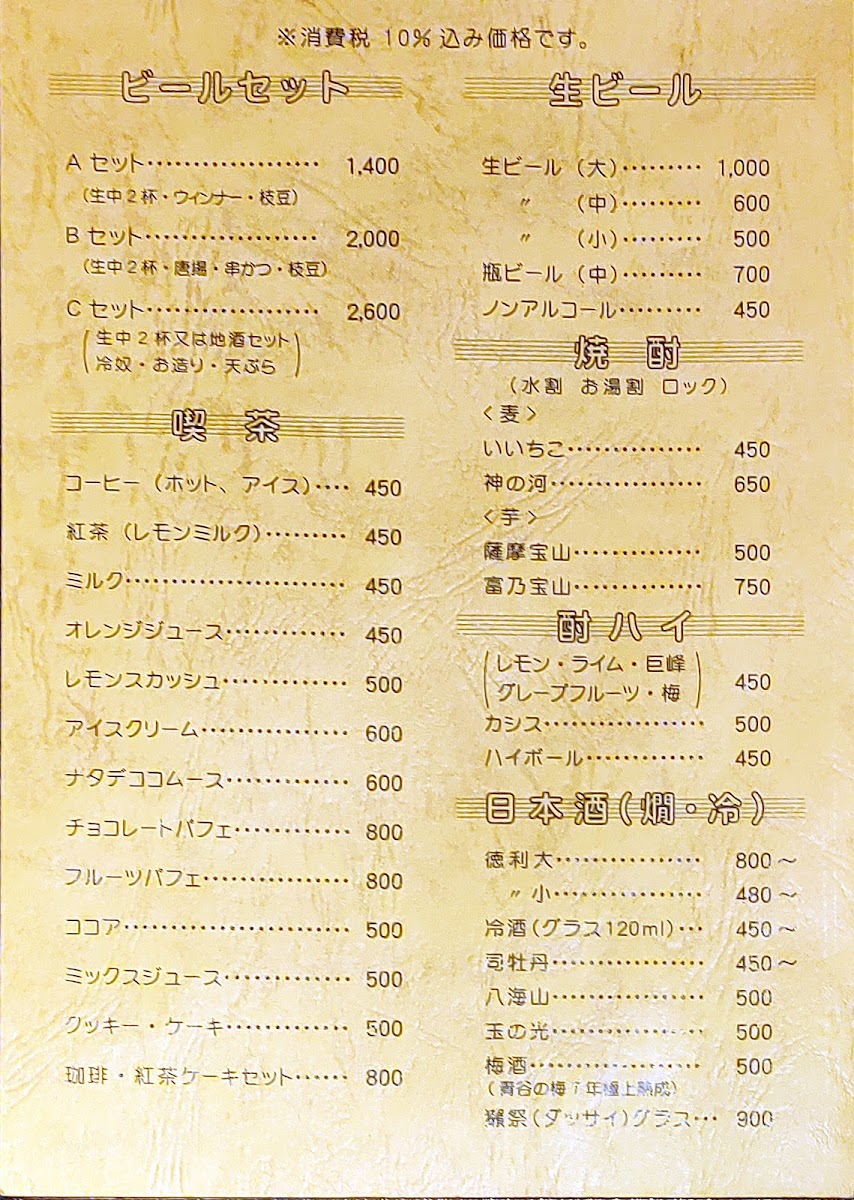 ※消費税 10% 込み価格です。
ビールセット
Aセット・・・・・・・・・・・・・・・・・・・ 1,400
(生中2杯・ウィンナー・枝豆)
Bセット・・・・・・・・・・・・・・・・・・・ 2,000
(生中2杯・唐揚・串かつ・枝豆)
Cセット・・・・・・・・・・・・・・・・・・・ 2,600
(生中2杯又は地酒セット
冷奴・お造り・天ぷら)
喫茶
コーヒー(ホット、アイス)・・・・ 450
紅茶(レモンミルク)・・・・・・・・・ 450
ミルク・・・・・・・・・・・・・・・・・・・・・・・・ 450
オレンジジュース・・・・・・・・・・・・・ 450
レモンスカッシュ・・・・・・・・・・・・・ 500
アイスクリーム・・・・・・・・・・・・・・・・ 600
ナタデココムース・・・・・・・・・・・・・ 600
チョコレートパフェ・・・・・・・・・・・・ 800
フルーツパフェ・・・・・・・・・・・・・・・・ 800
ココア・・・・・・・・・・・・・・・・・・・・・・・・ 500
ミックスジュース・・・・・・・・・・・・・ 500
クッキー・ケーキ・・・・・・・・・・・・・ 500
珈琲・紅茶ケーキセット・・・・・・ 800
生ビール
生ビール(大)・・・・・・・・・ 1,000
〃 (中)・・・・・・・・・ 600
〃 (小)・・・・・・・・・ 500
瓶ビール(中)・・・・・・・・・ 700
ノンアルコール・・・・・・・・・ 450
焼酎
(水割 お湯割 ロック)
<麦>
いいちこ・・・・・・・・・・・・・・・ 450
神の河・・・・・・・・・・・・・・・・・ 650
<芋>
薩摩宝山・・・・・・・・・・・・・・ 500
富乃宝山・・・・・・・・・・・・・・ 750
酎ハイ
(レモン・ライム・巨峰
グレープフルーツ・梅) 450
カシス・・・・・・・・・・・・・・・・・・ 500
ハイボール・・・・・・・・・・・・・ 450
日本酒(燗・冷)
徳利大・・・・・・・・・・・・・・・・ 800~
〃小・・・・・・・・・・・・・・・・・ 480~
冷酒(グラス120ml)・・・ 450~
司牡丹・・・・・・・・・・・・・・・・・ 450~
八海山・・・・・・・・・・・・・・・・・ 500
玉の光・・・・・・・・・・・・・・・・・ 500
梅酒・・・・・・・・・・・・・・・・・・・ 500
(青谷の梅7年極上熟成)
獺祭(ダッサイ)グラス・・・ 900